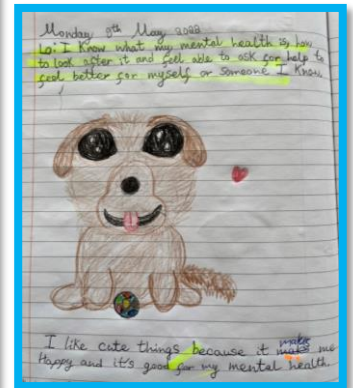 Monday 9th May 2022
Lo: I know what my mental health is, how
to look after it and feel able to ask for help to
feel better for myself or someone I know
I like cute things because it makes me
Happy and it's good for my mental health.